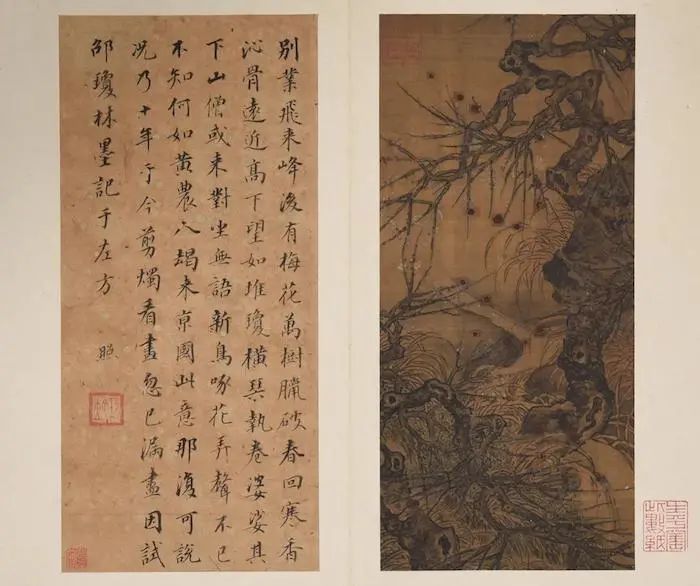 別業飛來峰後有梅花萬樹臘破春回寒香
沁骨遠近高下望如堆瓊橫琴執卷婆娑其
下山僧或來對坐無語新鳥啄花弄聲不已
不知何如黃農八朅來京國此意那復可說
況乃十年于今剪燭看畫忽已漏盡因試
邵瓊林墨記于左方 照